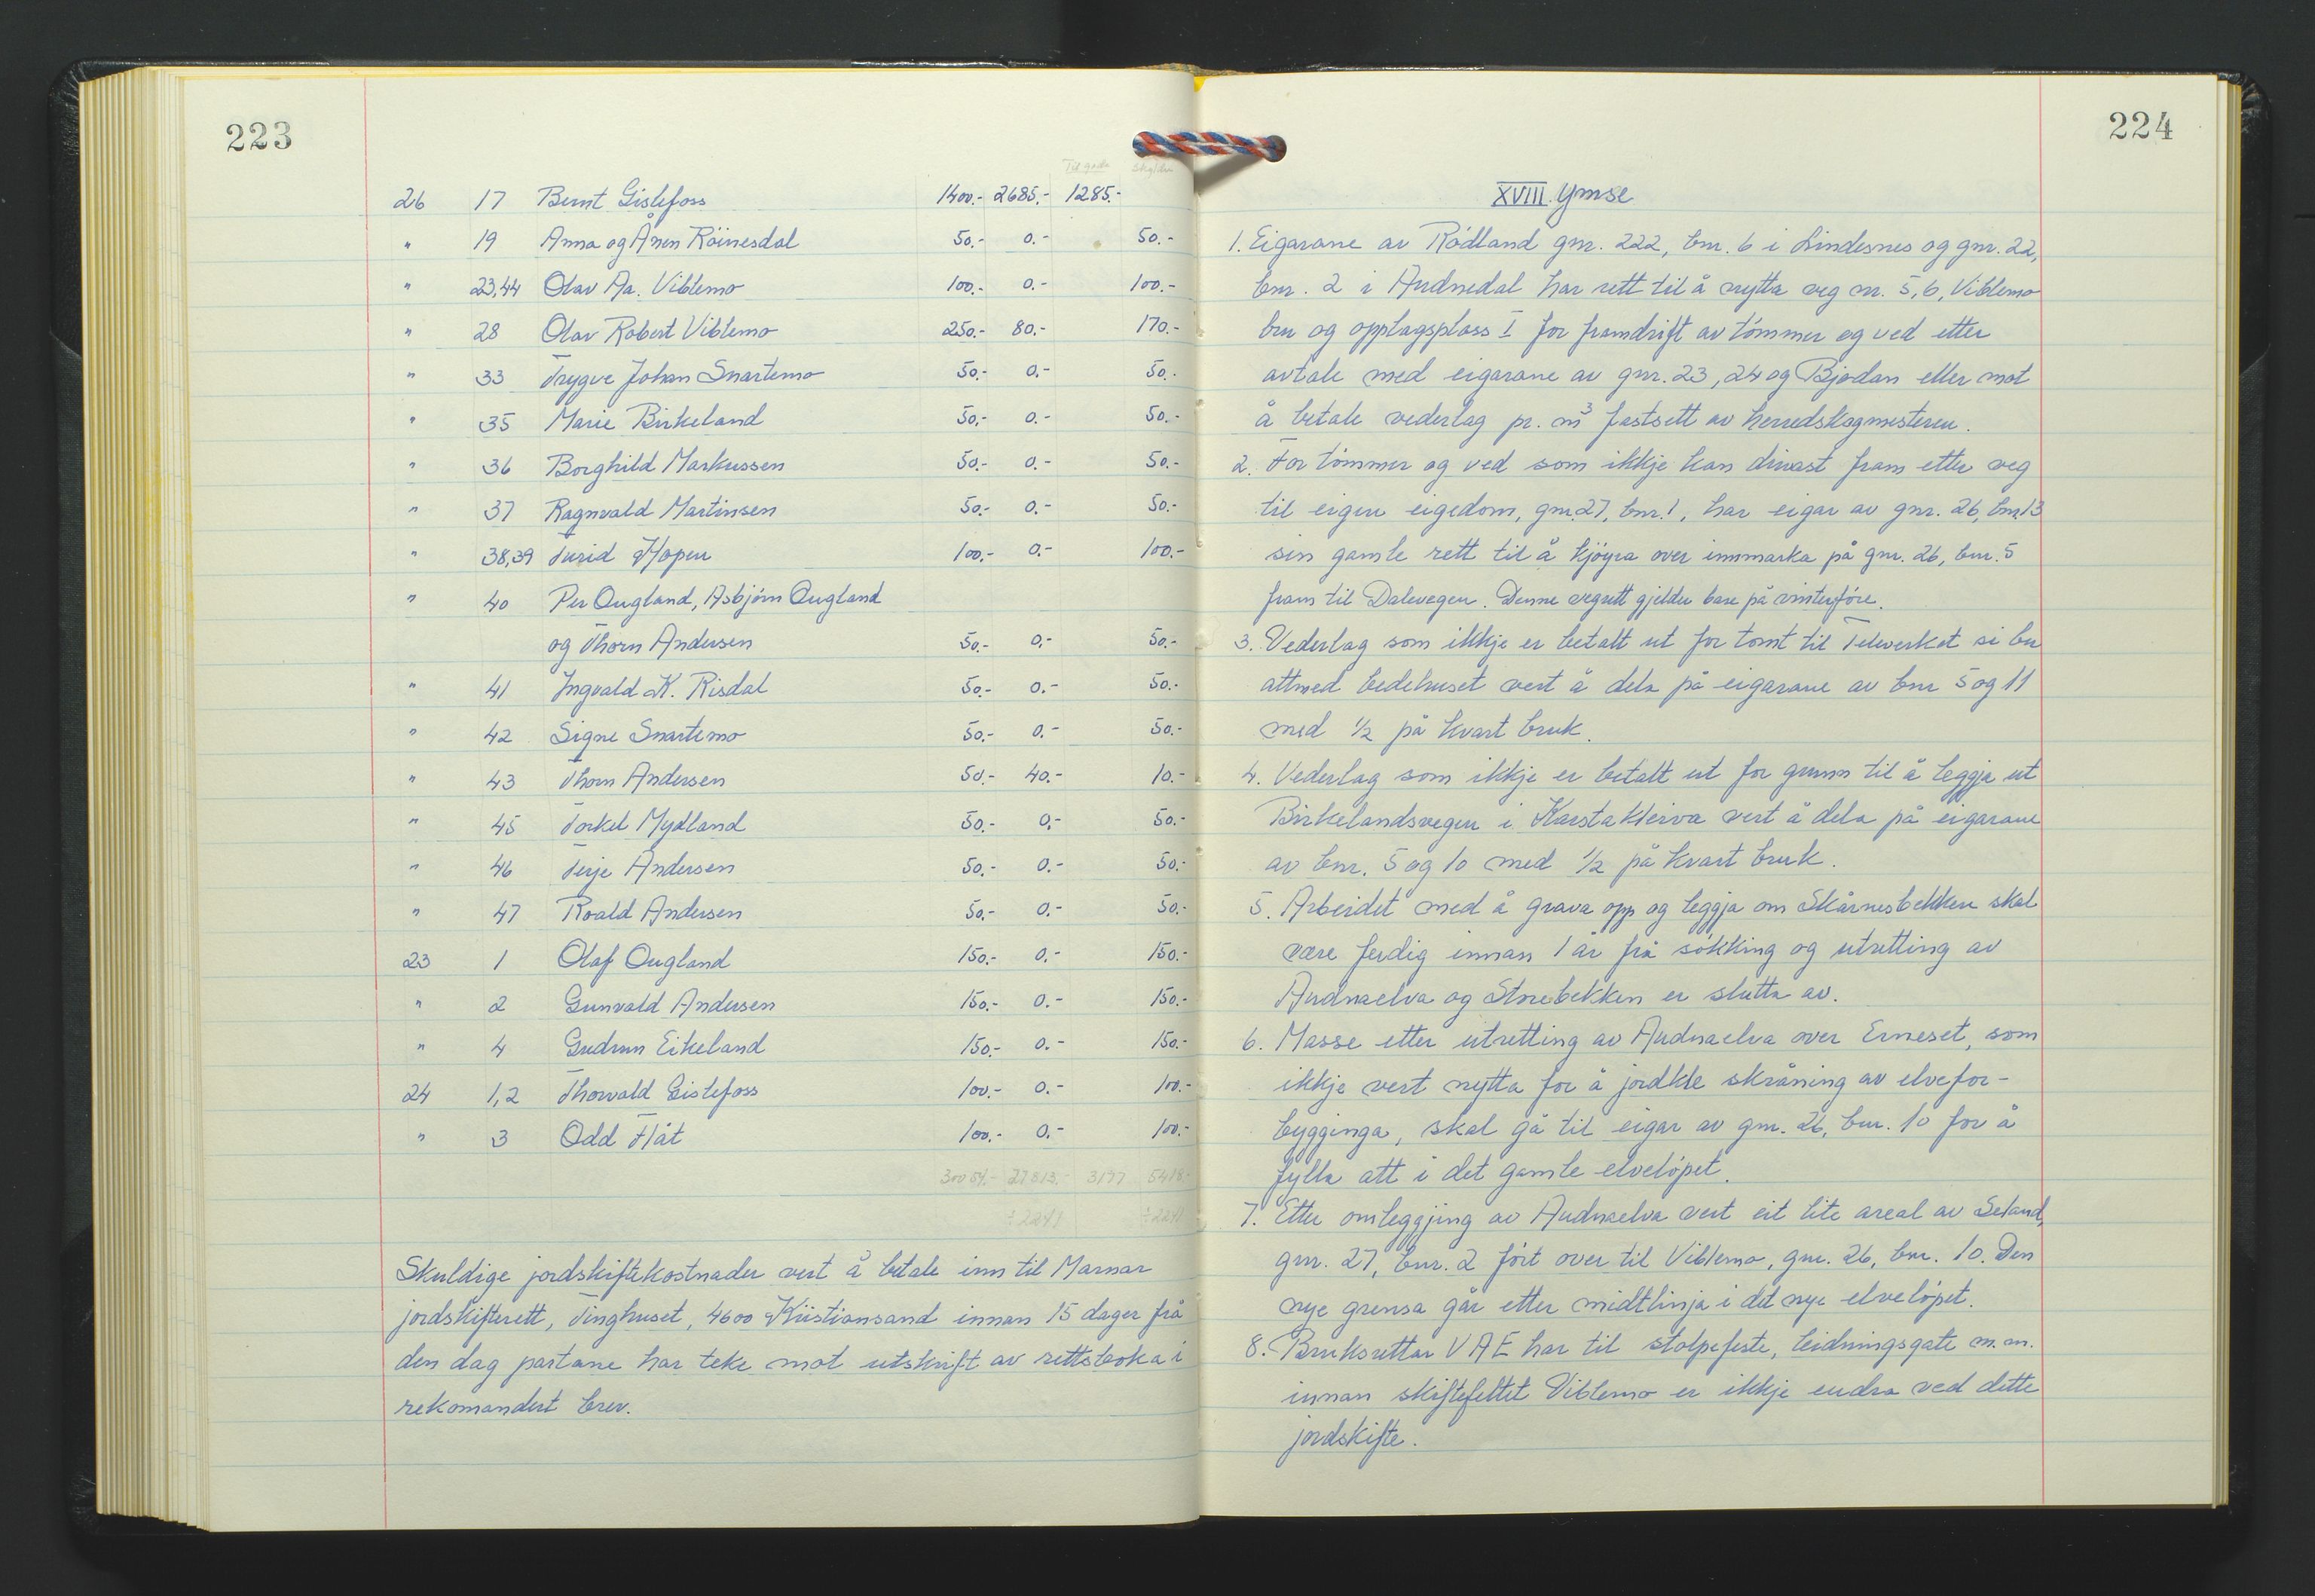 223
Til gode
26 17 Bernt Gislefoss 1400.- 2685.- 1285.-
" 19 Anna og Ånen Röinesdal 50.- 0.- 50.-
" 23,44 Olav Aa. Viblemo 100.- 0.- 100.-
" 28 Olav Robert Viblemo 250.- 80.- 170.-
" 33 Trygve Johan Snartemo 50.- 0.- 50.-
" 35 Marie Birkeland 50.- 0.- 50.-
" 36 Borghild Markussen 50.- 0.- 50.-
" 37 Ragnvald Martinsen 50.- 0.- 50.-
" 38,39 Turid Hopen 100.- 0.- 100.-
" 40 Per Ougland, Asbjörn Ougland
og Thorn Andersen 50.- 0.- 50.-
" 41 Ingvald K. Risdal 50.- 0.- 50.-
" 42 Signe Snartemo 50.- 0.- 50.-
" 43 Thorn Andersen 50.- 40.- 10.-
" 45 Torkel Mydland 50.- 0.- 50.-
" 46 Terje Andersen 50.- 0.- 50.-
" 47 Roald Andersen 50.- 0.- 50.-
23 1 Olaf Ougland 150.- 0.- 150.-
" 2 Gunvald Andersen 150.- 0.- 150.-
" 4 Gudrun Eikeland 150.- 0.- 150.-
24 1,2 Thorvald Gislefoss 100.- 0.- 100.-
" 3 Odd Flåt 100.- 0.- 100.-
30054.- 27813.- 3177
÷2241 ÷2241
Skuldige jordskiftekostnader vert å betale inn til Marnar
jordskifterett, Tinghuset, 4600 Kristiansand innan 15 dager frå
den dag partane har teke mot utskrift av rettsboka i
rekomandert brev.
224
XVIII. Ymse
1. Eigarane av Rödland gnr. 222, bnr. 6 i Lindesnes og gnr. 22,
bnr. 2 i Audnedal har rett til å nytta veg nr. 5, 6, Viblemo
bru og opplagsplass I for framdrift av tömmer og ved etter
avtale med eigarane av gnr. 23, 24 og Bjodan eller mot
å betale vederlag pr. m³ fastsett av herredskogmesteren.
2. For tömmer og ved som ikkje kan drivast fram etter veg
til eigen eigedom, gnr. 27, bnr. 1, har eigar av gnr. 26, bnr. 13
sin gamle rett til å kjöyra over innmarka på gnr. 26, bnr. 5
fram til Dalevegen. Denne vegrett gjelder bare på vinterföre.
3. Vederlag som ikkje er betalt ut for tomt til Televerket si bu
attmed bedehuset vert å dela på eigarane av bnr 5 og 11
med ½ på kvart bruk.
4. Vederlag som ikkje er betalt ut for grunn til å leggja ut
Birkelandsvegen i Karstakleiva vert å dela på eigarane
av bnr. 5 og 10 med ½ på kvart bruk.
5. Arbeidet med å grava opp og leggja om Skårnesbekken skal
være ferdig innan 1 år frå sökking og utretting av
Audnaelva og Storebekken er slutta av.
6. Masse etter utretting av Audnaelva over Erneset, som
ikkje vert nytta for å jordkle skråning av elvefor-
bygginga, skal gå til eigar av gnr. 26, bnr. 10 for å
fylla att i det gamle elvelöpet.
7. Etter omleggjing av Audnaelva vert eit lite areal av Seland,
gnr. 27, bnr. 2 fört over til Viblemo, gnr. 26, bnr. 10. Den
nye grensa går etter midtlinja i det nye elvelöpet.
8. Bruksrettar VAE har til stolpefeste, leidningsgate m.m.
innan skiftefeltet Viblemo er ikkje endra ved dette
jordskifte.